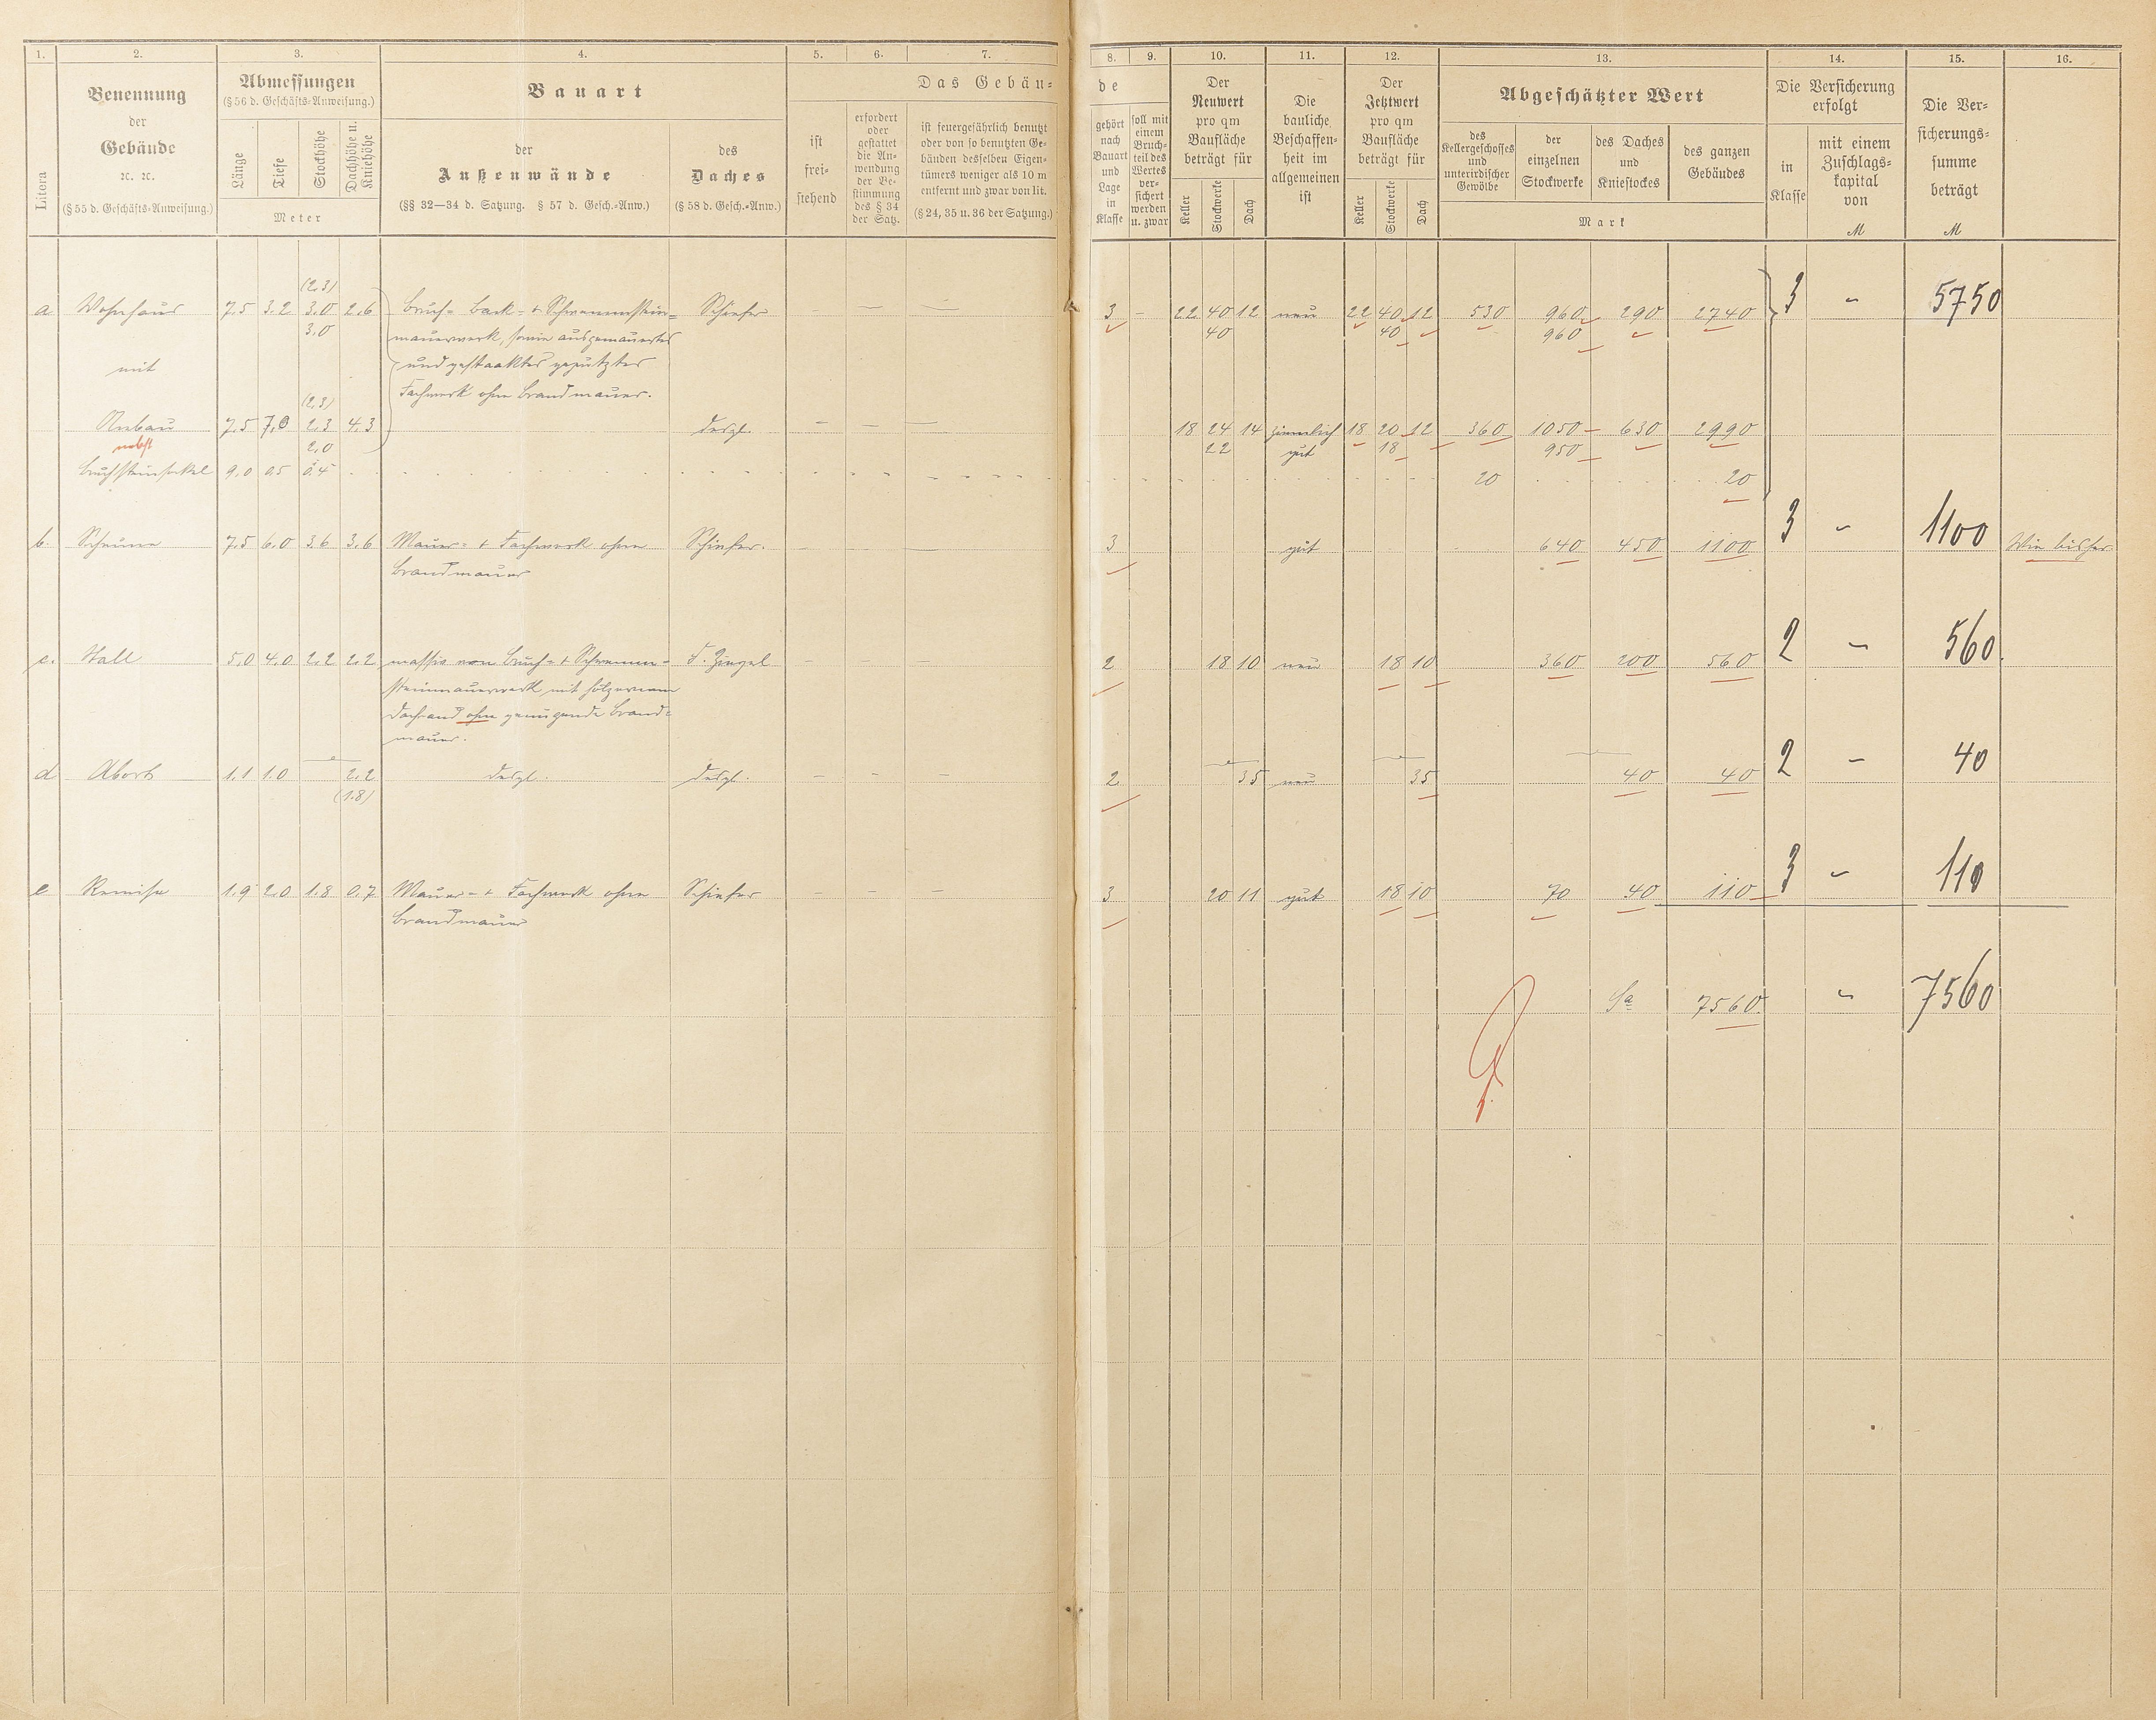 1. 2. 3. 4. 5. 6. 7. 8. 9. 10. 11. 12. 13. 14. 15. 16.
Litera
Benennung
der
Gebäude
ꝛc. ꝛc.
(§ 55 d. Geschäfts-Anweisung.)
Abmessungen
(§ 56 d. Geschäfts-Anweisung.)
Länge
Tiefe
Stockhöhe
Dachhöhe u.
Kniehöhe
Meter
Bauart
der
Außenwände
(§§ 32—34 d. Satzung. § 57 d. Gesch.-Anw.)
des
Daches
(§ 58 d. Gesch.-Anw.)
Das Gebäu-
ist
frei-
stehend
erfordert
oder
gestattet
die An-
wendung
der Be-
stimmung
des § 34
der Satz.
ist feuergefährlich benutzt
oder von so benutzten Ge-
bäuden desselben Eigen-
tümers weniger als 10 m
entfernt und zwar von lit.
(§ 24, 35 u. 36 der Satzung.)
de
gehört
nach
Bauart
und
Lage
in
Klasse
soll mit
einem
Bruch-
teil des
Wertes
ver-
sichert
werden
u. zwar
Der
Neuwert
pro qm
Baufläche
beträgt für
Keller
Stockwerke
Dach
Die
bauliche
Beschaffen-
heit im
allgemeinen
ist
Der
Jetztwert
pro qm
Baufläche
beträgt für
Keller
Stockwerke
Dach
Abgeschätzter Wert
des
Kellergeschosses
und
unterirdischer
Gewölbe
der
einzelnen
Stockwerke
des Daches
und
Kniestockes
des ganzen
Gebäudes
Mark
Die Versicherung
erfolgt
in
Klasse
mit einem
Zuschlags-
kapital
von
M
Die Ver-
sicherungs-
summe
beträgt
M
(2,3)
a Wohnhaus 7.5 3.2 3.0 2.6 Bruch- Back- + Schwemmstein- Schiefer — — 3 — 22 40 12 neu 22 40 12 530 960 290 2740 3 — 5750
3,0 mauerwerk, sowie ausgemauertes 40 40 960
mit und gestaaktes geputztes
(2,3) Fachwerk ohne Brandmauer.
Anbau 7.5 7,0 2.3 4.3 desgl. — — — 18 24 14 ziemlich 18 20 12 360 1050 630 2990
nebst 2,0 22 gut 18 950
Bruchsteinsockel 9.0 0.5 0.4 20 20
b. Scheune 7.5 6.0 3.6 3.6 Mauer- + Fachwerk ohne Schiefer. — — — 3 gut 640 450 1100 3 — 1100 Wie bisher
Brandmauer
c. Stall 5.0 4.0 2.2 2.2 massiv von Bruch- + Schwemm- F. Ziegel — — — 2 18 10 neu 18 10 360 200 560 2 — 560
steinmauerwerk mit hölzernem
Dachrand ohne genügende Brand-
mauer.
d Abort 1.1 1.0 2.2 desgl. desgl. — — — 2 35 neu 35 40 40 2 — 40
(1.8)
e Remise 1.9 2.0 1.8 0.7 Mauer- + Fachwerk ohne Schiefer — — — 3 20 11 gut 18 10 70 40 110 3 — 110
Brandmauer
Sa 7560. — 7560